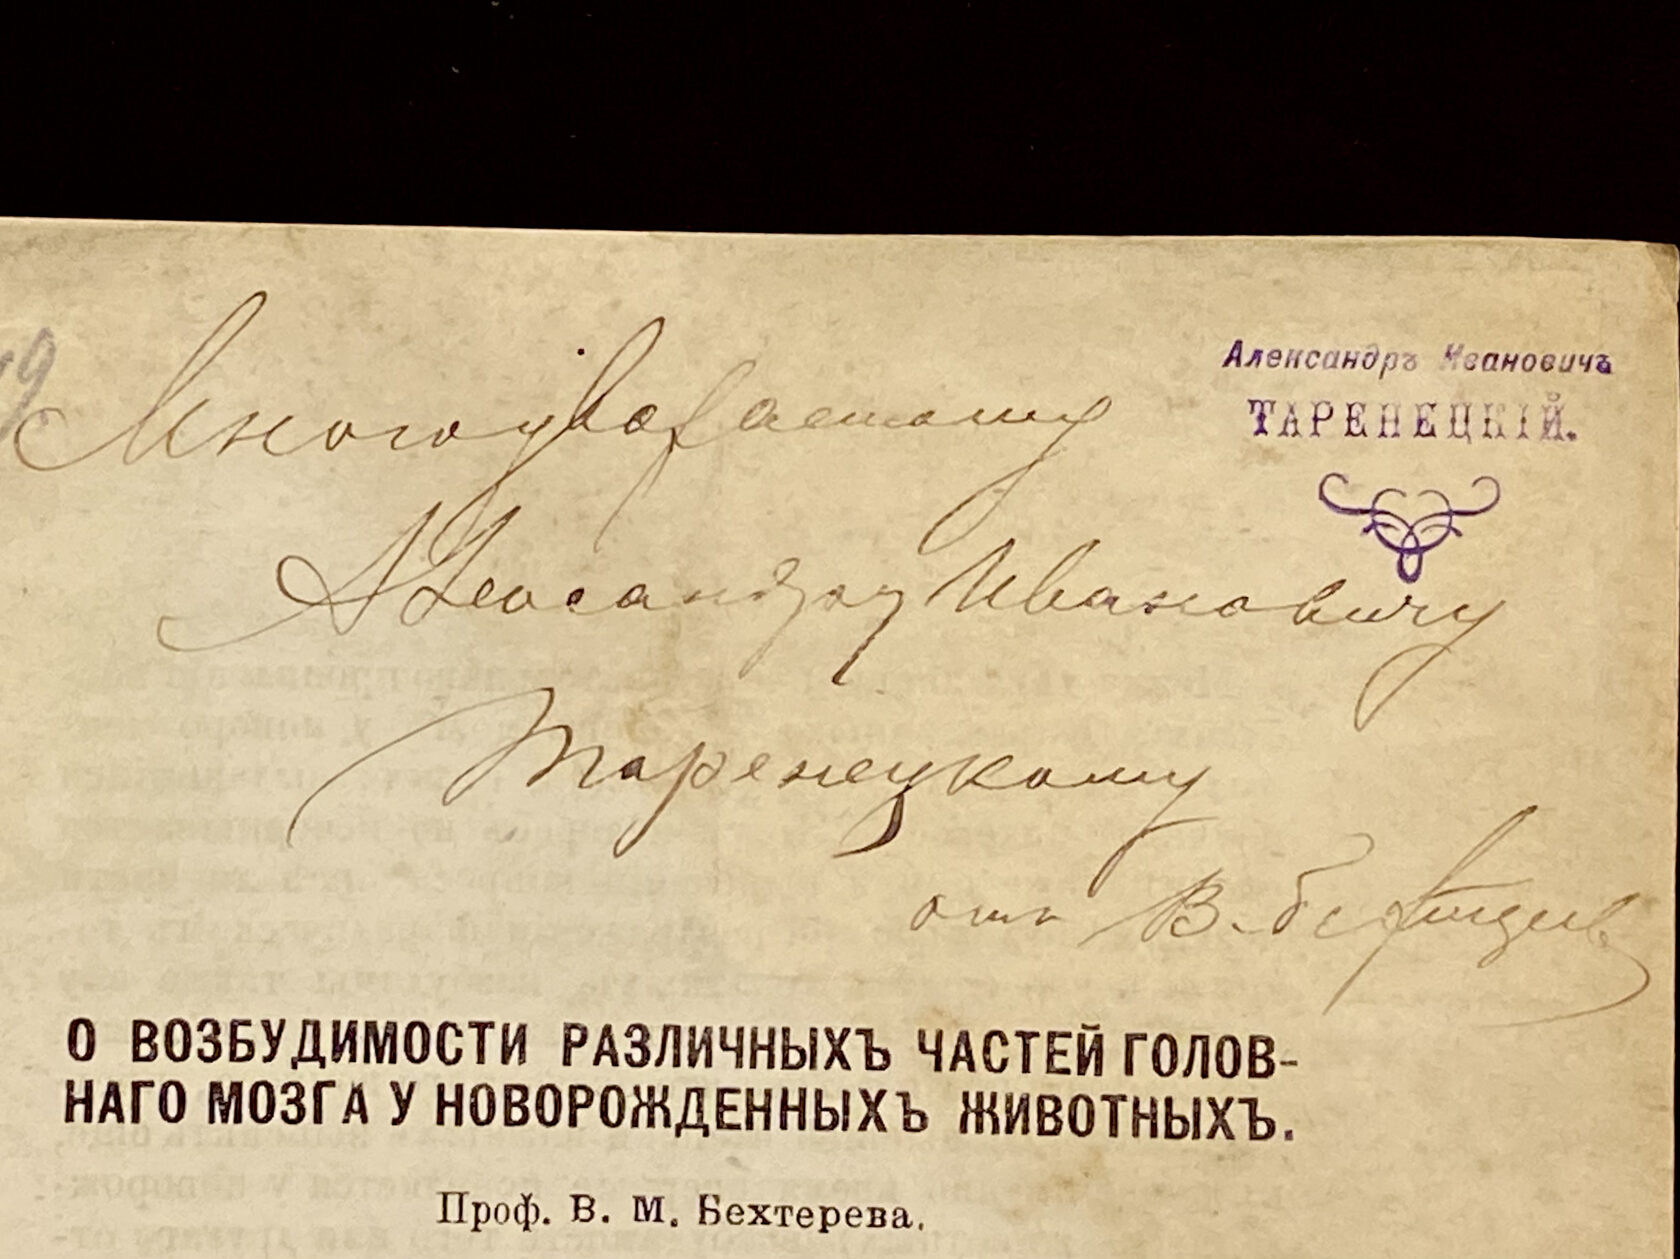 Многоуважаемому
Александру Ивановичу
Таренецкому
отъ В. Бехтерева
Александръ Ивановичъ
ТАРЕНЕЦКІЙ.
О ВОЗБУДИМОСТИ РАЗЛИЧНЫХЪ ЧАСТЕЙ ГОЛОВ-
НАГО МОЗГА У НОВОРОЖДЕННЫХЪ ЖИВОТНЫХЪ.
Проф. В. М. Бехтерева.